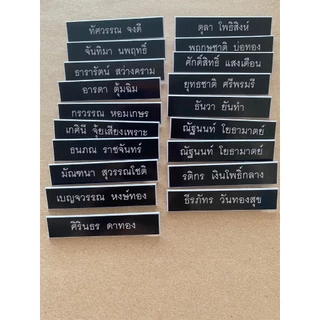 ทัศวรรณ จงดี
จันทิมา นพฤทธิ์
ธารารัตน์ สว่างคราม
อารดา ตุ้มฉิม
กรวรรณ หอมเกษร
เกศินี จุ้ยเสียงเพราะ
ธนภณ ราชจันทร์
มัณฑนา สุวรรณโชติ
เบญจวรรณ หงษ์ทอง
ศิรินธร ดาทอง
ตุลา โพธิสิงห์
พฤกษชาติ บ่อทอง
ศักดิ์สิทธิ์ แสงเดือน
ยุทธชาติ ศรีพรมรี
ธันวา ยันทำ
ณัฐนนท์ โยธามาตย์
ณัฐนนท์ โยธามาตย์
รติกร เงินโพธิ์กลาง
ธีรภัทร วันทองสุข